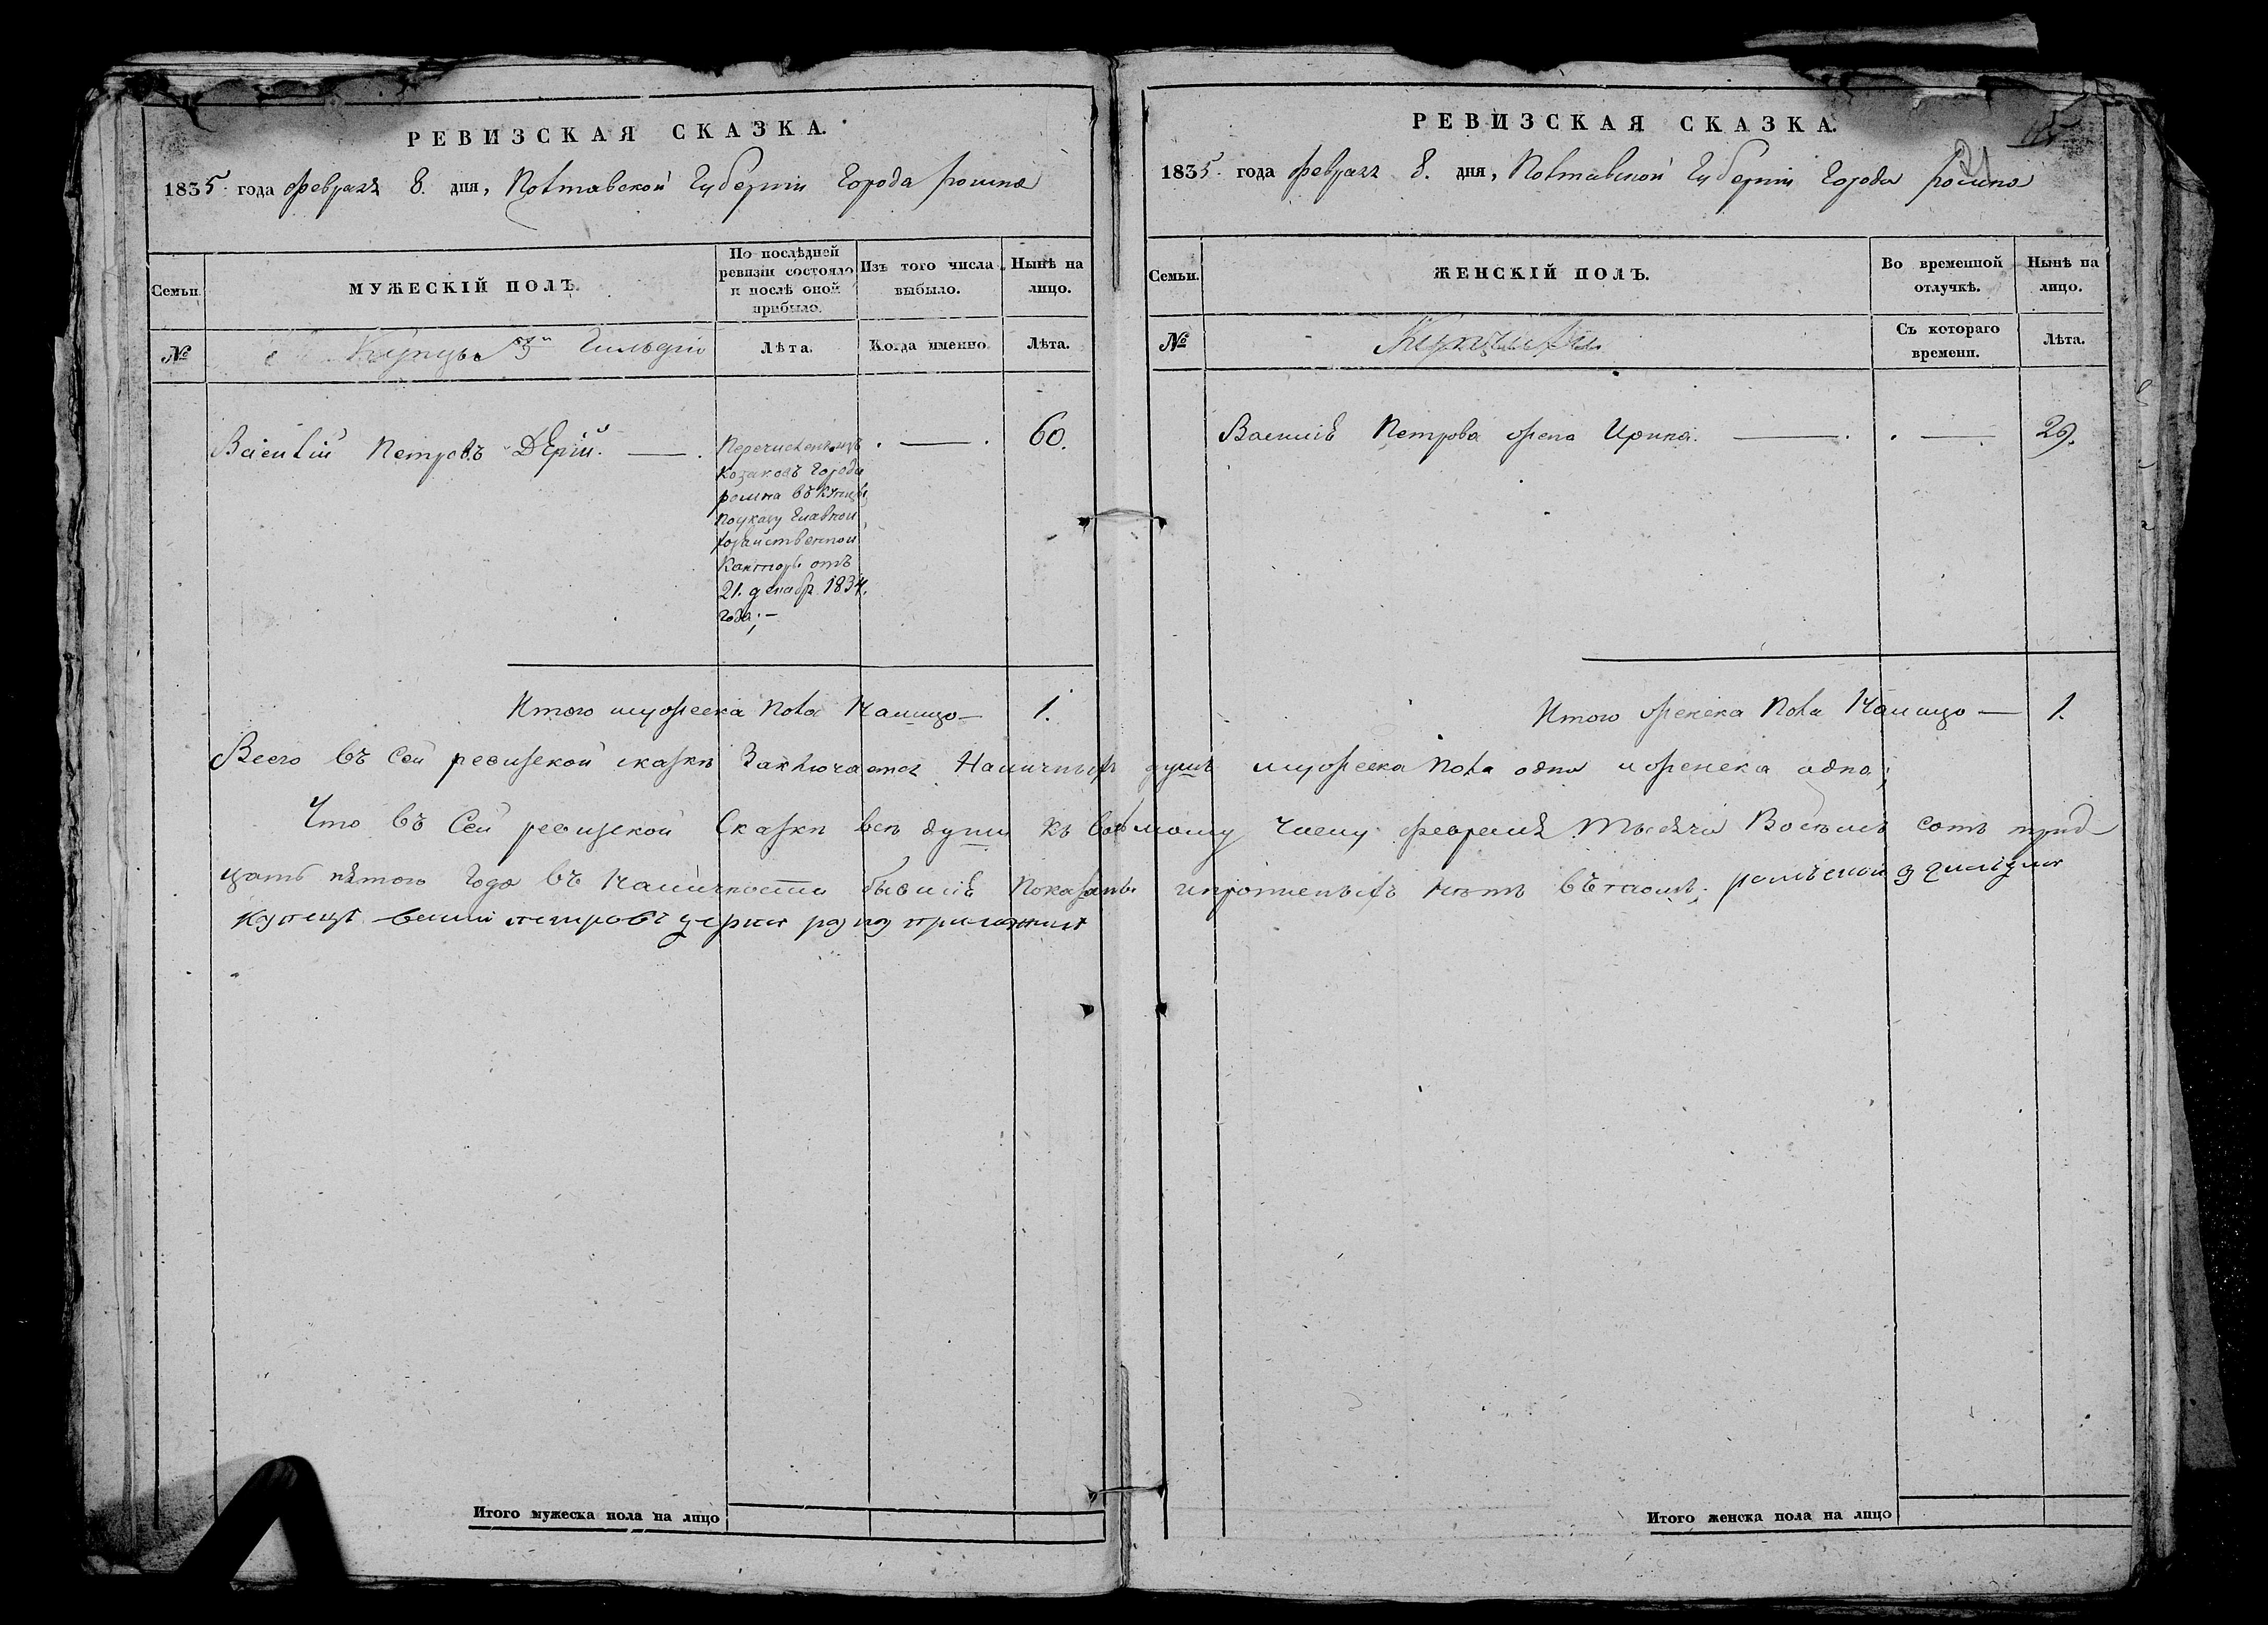 РЕВИЗСКАЯ СКАЗКА.
1835 года февраля 8. дня, Полтавской Губернии Города Ромна
Семьи.
МУЖЕСКІЙ ПОЛЪ.
По послѣдней ревизіи состояло и послѣ оной прибыло.
Изъ того числа выбыло.
Нынѣ на лицо.
№
Купцы 3й Гильдіи
Лѣта.
Когда именно.
Лѣта.
Василій Петровъ Дерій. — . — . 60.
Перечисленъ изъ
Козаковъ Города
ромна въ купцы
по указу Главной
хозяйственной
Конторы отъ
21. декабр. 1834.
года; —
Итого мужеска пола Налицо — 1.
РЕВИЗСКАЯ СКАЗКА.
21
1835. года февраля 8. дня, Полтавской Губернии Города Ромна
Семьи.
ЖЕНСКІЙ ПОЛЪ.
Во временной отлучкѣ.
Нынѣ на лицо.
№
Съ котораго времени.
Лѣта.
Василія Петрова жена Ирина. — . — 29.
Итого женска пола Налицо — 1.
Всего въ сей ревизской сказкѣ Заключается Наличныхъ душъ мужеска пола одна и женска одна;
Что въ Сей ревизской Сказкѣ всѣ души къ Восьмому числу февраля тысяча Восемь сотъ трид
цать пятого года въ Наличности бывшіе Показаны и прописныхъ нѣтъ въ томъ; роменской 3 гилдіи
Купецъ васили петровъ дерии руку приложил
Итого мужеска пола на лицо
Итого женска пола на лицо